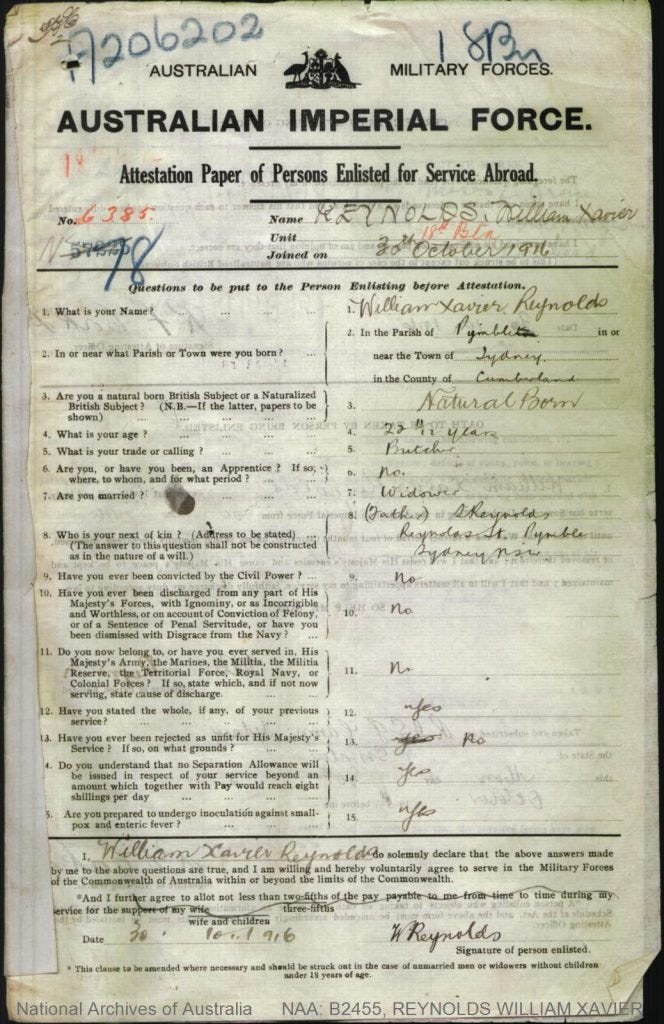 17206202
18Bn
AUSTRALIAN MILITARY FORCES.
AUSTRALIAN IMPERIAL FORCE.
Attestation Paper of Persons Enlisted for Service Abroad.
No. 6385. Name REYNOLDS, William Xavier
Unit 18th Btn
Joined on 30th October 1916
Questions to be put to the Person Enlisting before Attestation.
1. What is your Name? ... ... 1. William Xavier Reynolds
2. In or near what Parish or Town were you born? ... 2. In the Parish of Pymble in or
near the Town of Sydney
in the County of Cumberland
3. Are you a natural born British Subject or a Naturalized
British Subject? (N.B.—If the latter, papers to be
shown) ... ... 3. Natural Born
4. What is your age? ... ... 4. years
5. What is your trade or calling? ... ... 5. Butcher
6. Are you, or have you been, an Apprentice? If so,
where, to whom, and for what period? ... 6. No.
7. Are you married? ... ... 7. Widower
8. Who is your next of kin? (Address to be stated)
(The answer to this question shall not be constructed
as in the nature of a will.) 8. (Father) Reynolds
Reynolds St. Pymble
Sydney NSW
9. Have you ever been convicted by the Civil Power? ... 9. No
10. Have you ever been discharged from any part of His
Majesty's Forces, with Ignominy, or as Incorrigible
and Worthless, or on account of Conviction of Felony,
or of a Sentence of Penal Servitude, or have you
been dismissed with Disgrace from the Navy? ... 10. No
11. Do you now belong to, or have you ever served in, His
Majesty's Army, the Marines, the Militia, the Militia
Reserve, the Territorial Force, Royal Navy, or
Colonial Forces? If so, state which, and if not now
serving, state cause of discharge. ... 11. No
12. Have you stated the whole, if any, of your previous
service? ... ... 12. Yes
13. Have you ever been rejected as unfit for His Majesty's
Service? If so, on what grounds? ... 13. Yes No
4. Do you understand that no Separation Allowance will
be issued in respect of your service beyond an
amount which together with Pay would reach eight
shillings per day ... ... 14. Yes
5. Are you prepared to undergo inoculation against small-
pox and enteric fever? ... ... 15. Yes
I, William Xavier Reynolds do solemnly declare that the above answers made
by me to the above questions are true, and I am willing and hereby voluntarily agree to serve in the Military Forces
of the Commonwealth of Australia within or beyond the limits of the Commonwealth.
*And I further agree to allot not less than two-fifths of the pay payable to me from time to time during my
three-fifths
service for the support of my wife
wife and children
Date 30 10. 1916 W Reynolds
Signature of person enlisted.
* This clause to be amended where necessary and should be struck out in the case of unmarried men or widowers without children
under 18 years of age.
National Archives of Australia NAA: B2455, REYNOLDS WILLIAM XAVIER